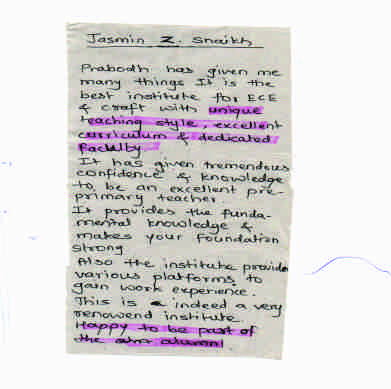 Jasmin Z. Shaikh
Prabodh has given me
many things It is the
best institute for ECE
& craft with unique
teaching style, excellent
curriculum & dedicated
faculty.
It has given tremendous
confidence & knowledge
to be an excellent pre-
primary teacher
It provides the funda-
mental knowledge &
makes your foundation
strong
Also the institute provide
various platforms to
gain work experience.
This is a indeed a very
renowend institute.
Happy to be part of
the alumni